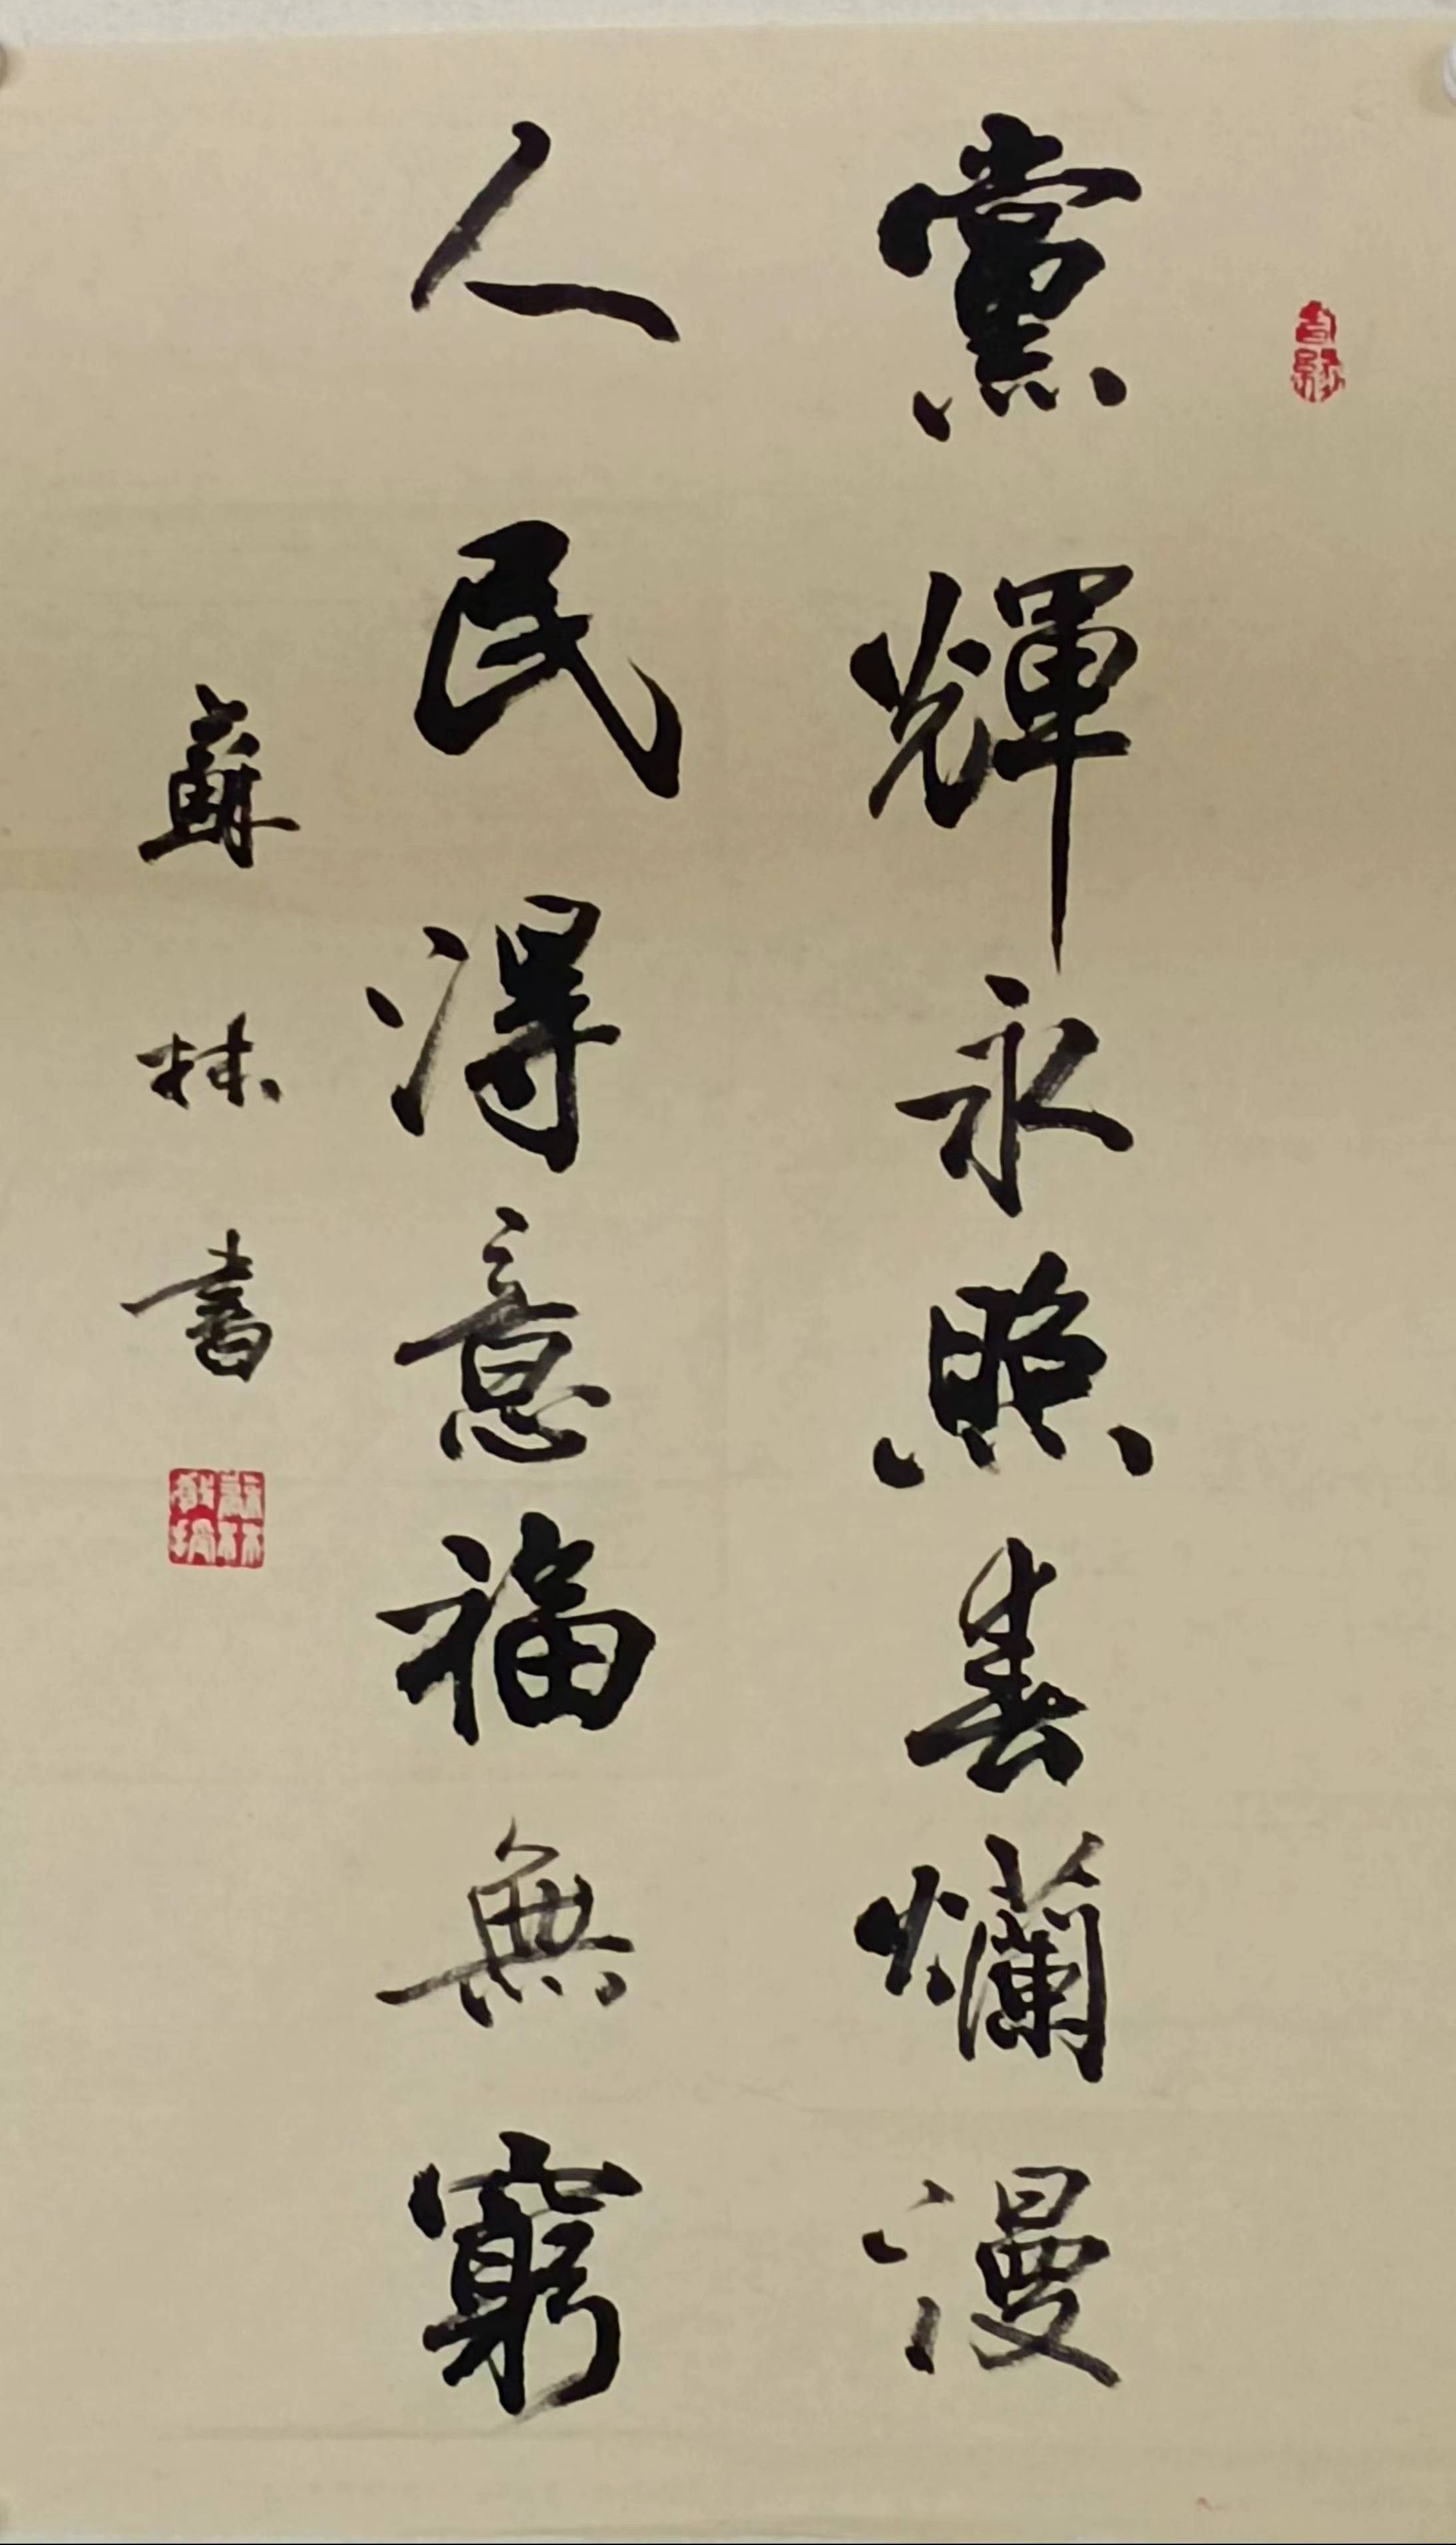 黨輝永照春爛漫
人民得意福無窮
蘇林書